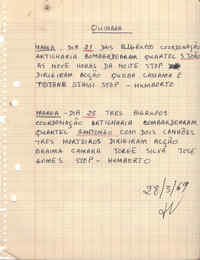 QUINARA
MAMA - DIA 21 DOIS BIGRUPOS COORDENAÇÃO
ARTILHARIA BOMBARDEARAM QUARTEL S. JOÃO
ÀS NOVE HORAS DA NOITE STOP
DIRIGIRAM ACÇÃO QUEBA CAMAMA E
STOP - HUMBERTO
MAMA - DIA 25 TRES BIGRUPOS
COORDENAÇÃO ARTILHARIA BOMBARDEARAM
QUARTEL COM DOIS CANHÕES
TRES MORTEIROS DIRIGIRAM ACÇÃO
BRAIMA CAMARA JORGE SILVA JOSÉ
GOMES STOP - HUMBERTO
28/3/69